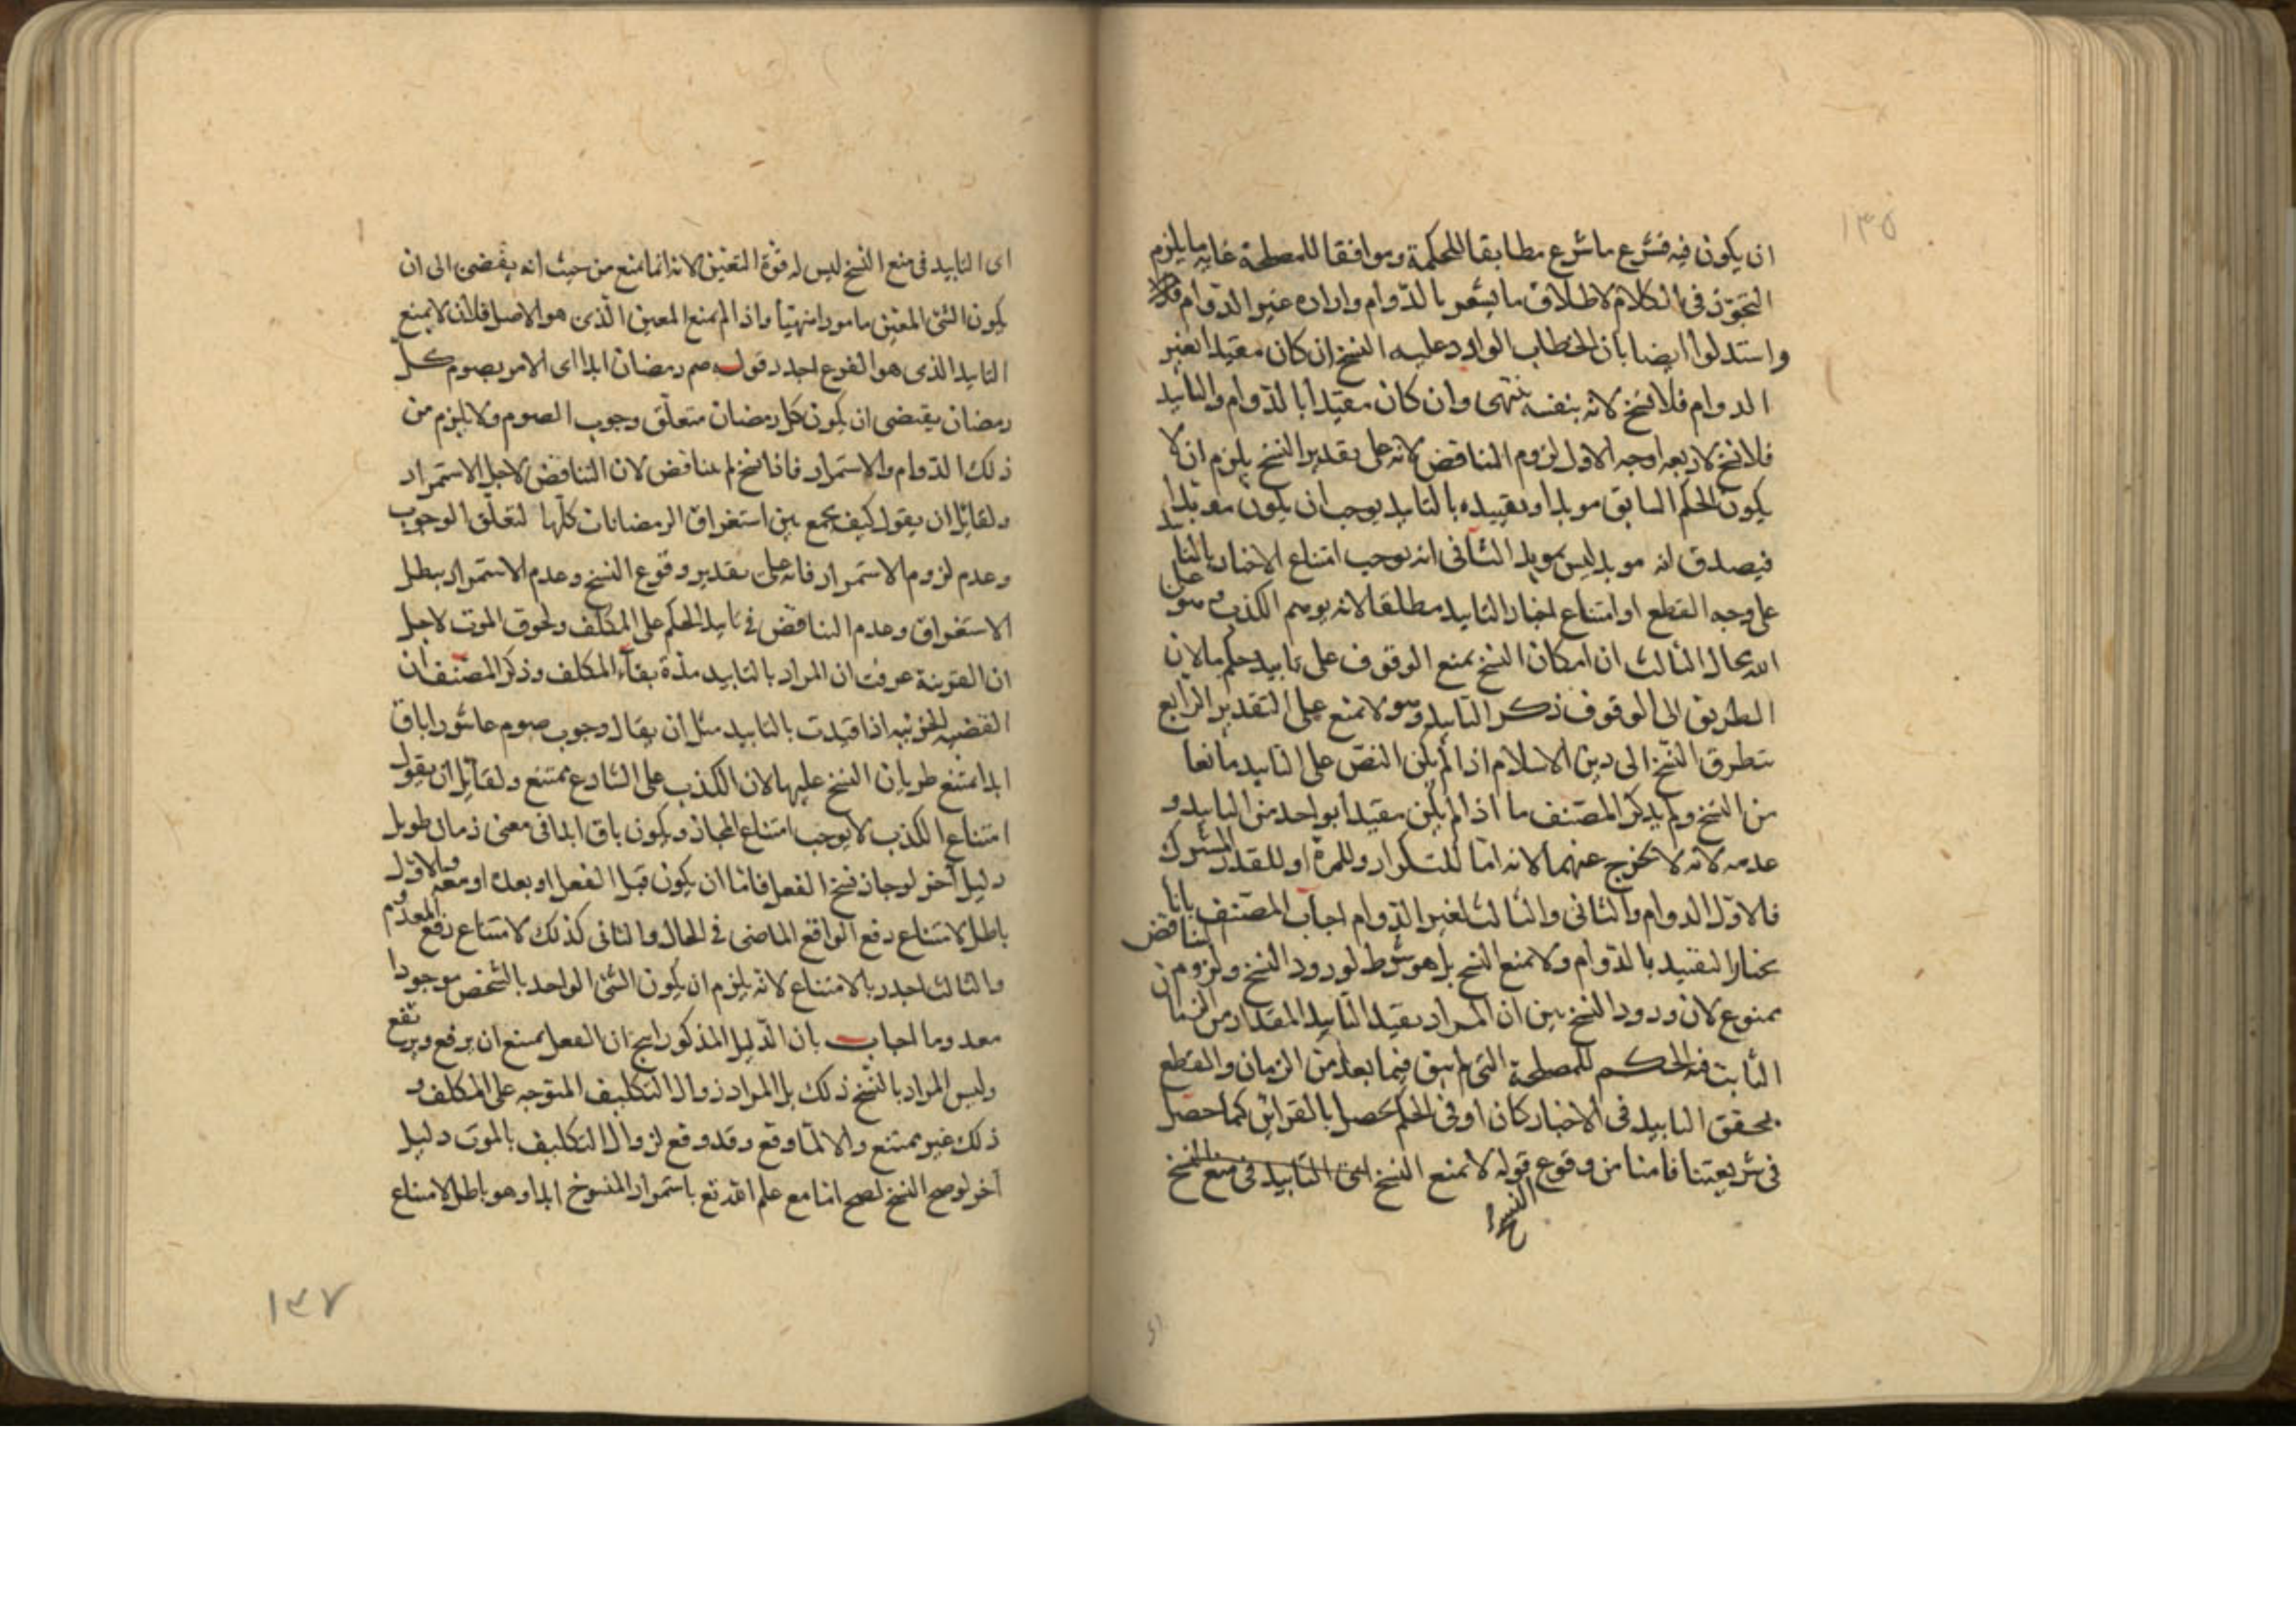 ١٣٥
ان يكون فيه فشرع ما شرع مطابقا للحكمة وموافقا للمصلحة غايه ما يلزم
التجوّز فى الكلام لاطلاق ما يشعر بالدّوام واراده غير الدّوام
واستدلوا ايضا بان الخطاب الوارد عليه النسخ ان كان مقيدا بغير
الدوام فلا نسخ لانه بنفسه ينتهى وان كان مقيّدا بالدّوام والتابيد
فلا نسخ لاربعه اوجه الاول لزوم التناقض لانه على تقدير النسخ يلزم ان لا
يكون الحكم السابق موبدا وتقييده بالتابيد يوجب ان يكون موبدا
فيصدق انه موبد ليس بموبد الثانى انه يوجب امتناع الاخبار بالتابيد
على وجه القطع او امتناع اخبار التابيد مطلقا لانه يوهم الكذب وهو على
الله محال الثالث ان امكان النسخ يمنع الوقوف على تابيد حكم ما لان
الطريق الى الوقوف ذكر التابيد وهو لا يمنع على التقدير الرابع
تتطرق النسخ الى دين الاسلام اذا لم يكن النصّ على التابيد مانعا
من النسخ ولم يذكر المصنف ما اذا لم يكن مقيدا بواحد من التابيد و
عدمه لانه لا يخرج عنهما لانه امّا للتكرار وللمرة او للقدر المشترك
فالاوّل الدوام والثانى والثالث لغير الدّوام اجاب المصنف بانا
نختار التقييد بالدّوام ولا يمنع النسخ بل هو شرط لورود النسخ ولزوم التناقض
ممنوع لان ورود النسخ بين ان المراد بقيد التابيد المقدار من الزمان
الثابت فيه الحكم للمصلحة التى لم تبق فيما بعد من الزمان والقطع
بتحقق التابيد فى الاخبار كان او فى الحكم يحصل بالقراين كما حصل
فى شريعتنا فامنا من وقوع قوله لا يمنع النسخ اى التابيد فى منع النسخ
النسخ
اى التابيد فى منع النسخ ليس له قوّة التعيّن لانه انما يمنع من حيث انه يفضى الى ان
يكون الشئ المعيّن مامورا منهيّا واذا لم يمنع المعين الّذى هو الاصل فلان لا يمنع
التابيد الذى هو الفرع اجدر قوله صم رمضان ابدا اى الامر بصوم كل
رمضان يقتضى ان يكون كل رمضان متعلّق وجوب الصوم ولا يلزم من
ذلك الدّوام والاستمرار فاذا نسخ لم يتناقض لان التناقض لاجل الاستمرار
ولقائل ان يقول كيف يجمع بين استغراق الرمضانات كلّها لتعلّق الوجوب
وعدم لزوم الاستمرار فانه على تقدير وقوع النسخ وعدم الاستمرار يبطل
الاستغراق وعدم التناقض فى تابيد الحكم على المكلف ولحوق الموت لاجل
ان القرينة عرفت ان المراد بالتابيد مدّة بقآء المكلف وذكر المصنف ان
القضيه الجزئيه اذا قيدت بالتابيد مثل ان يقال وجوب صوم عاشورا باق
ابدا امتنع طريان النسخ عليها لان الكذب على الشارع ممتنع ولقائل ان يقول
امتناع الكذب لا يوجب امتناع المجاز ويكون باق ابدا فى معنى زمان طويل
دليل آخر لو جاز نسخ الفعل فاما ان يكون قبل الفعل او بعده او معه والاول
باطل لامتناع رفع الواقع الماضى فى الحال والثانى كذلك لامتناع رفع المعدوم
والثالث اجدر بالامتناع لانه يلزم ان يكون الشئ الواحد بالشخص موجودا
معدوما اجاب بان الدّليل المذكور انتج ان الفعل يمتنع ان يرفع ويرتفع
وليس المراد بالنسخ ذلك بل المراد زوال التكليف المتوجه على المكلف و
ذلك غير ممتنع والا لمّا وقع وقد وقع لزوال التكليف بالموت دليل
آخر لو صح النسخ لصح اما مع علم الله تع باستمرار المنسوخ ابدا وهو باطل لامتناع
١٣٧